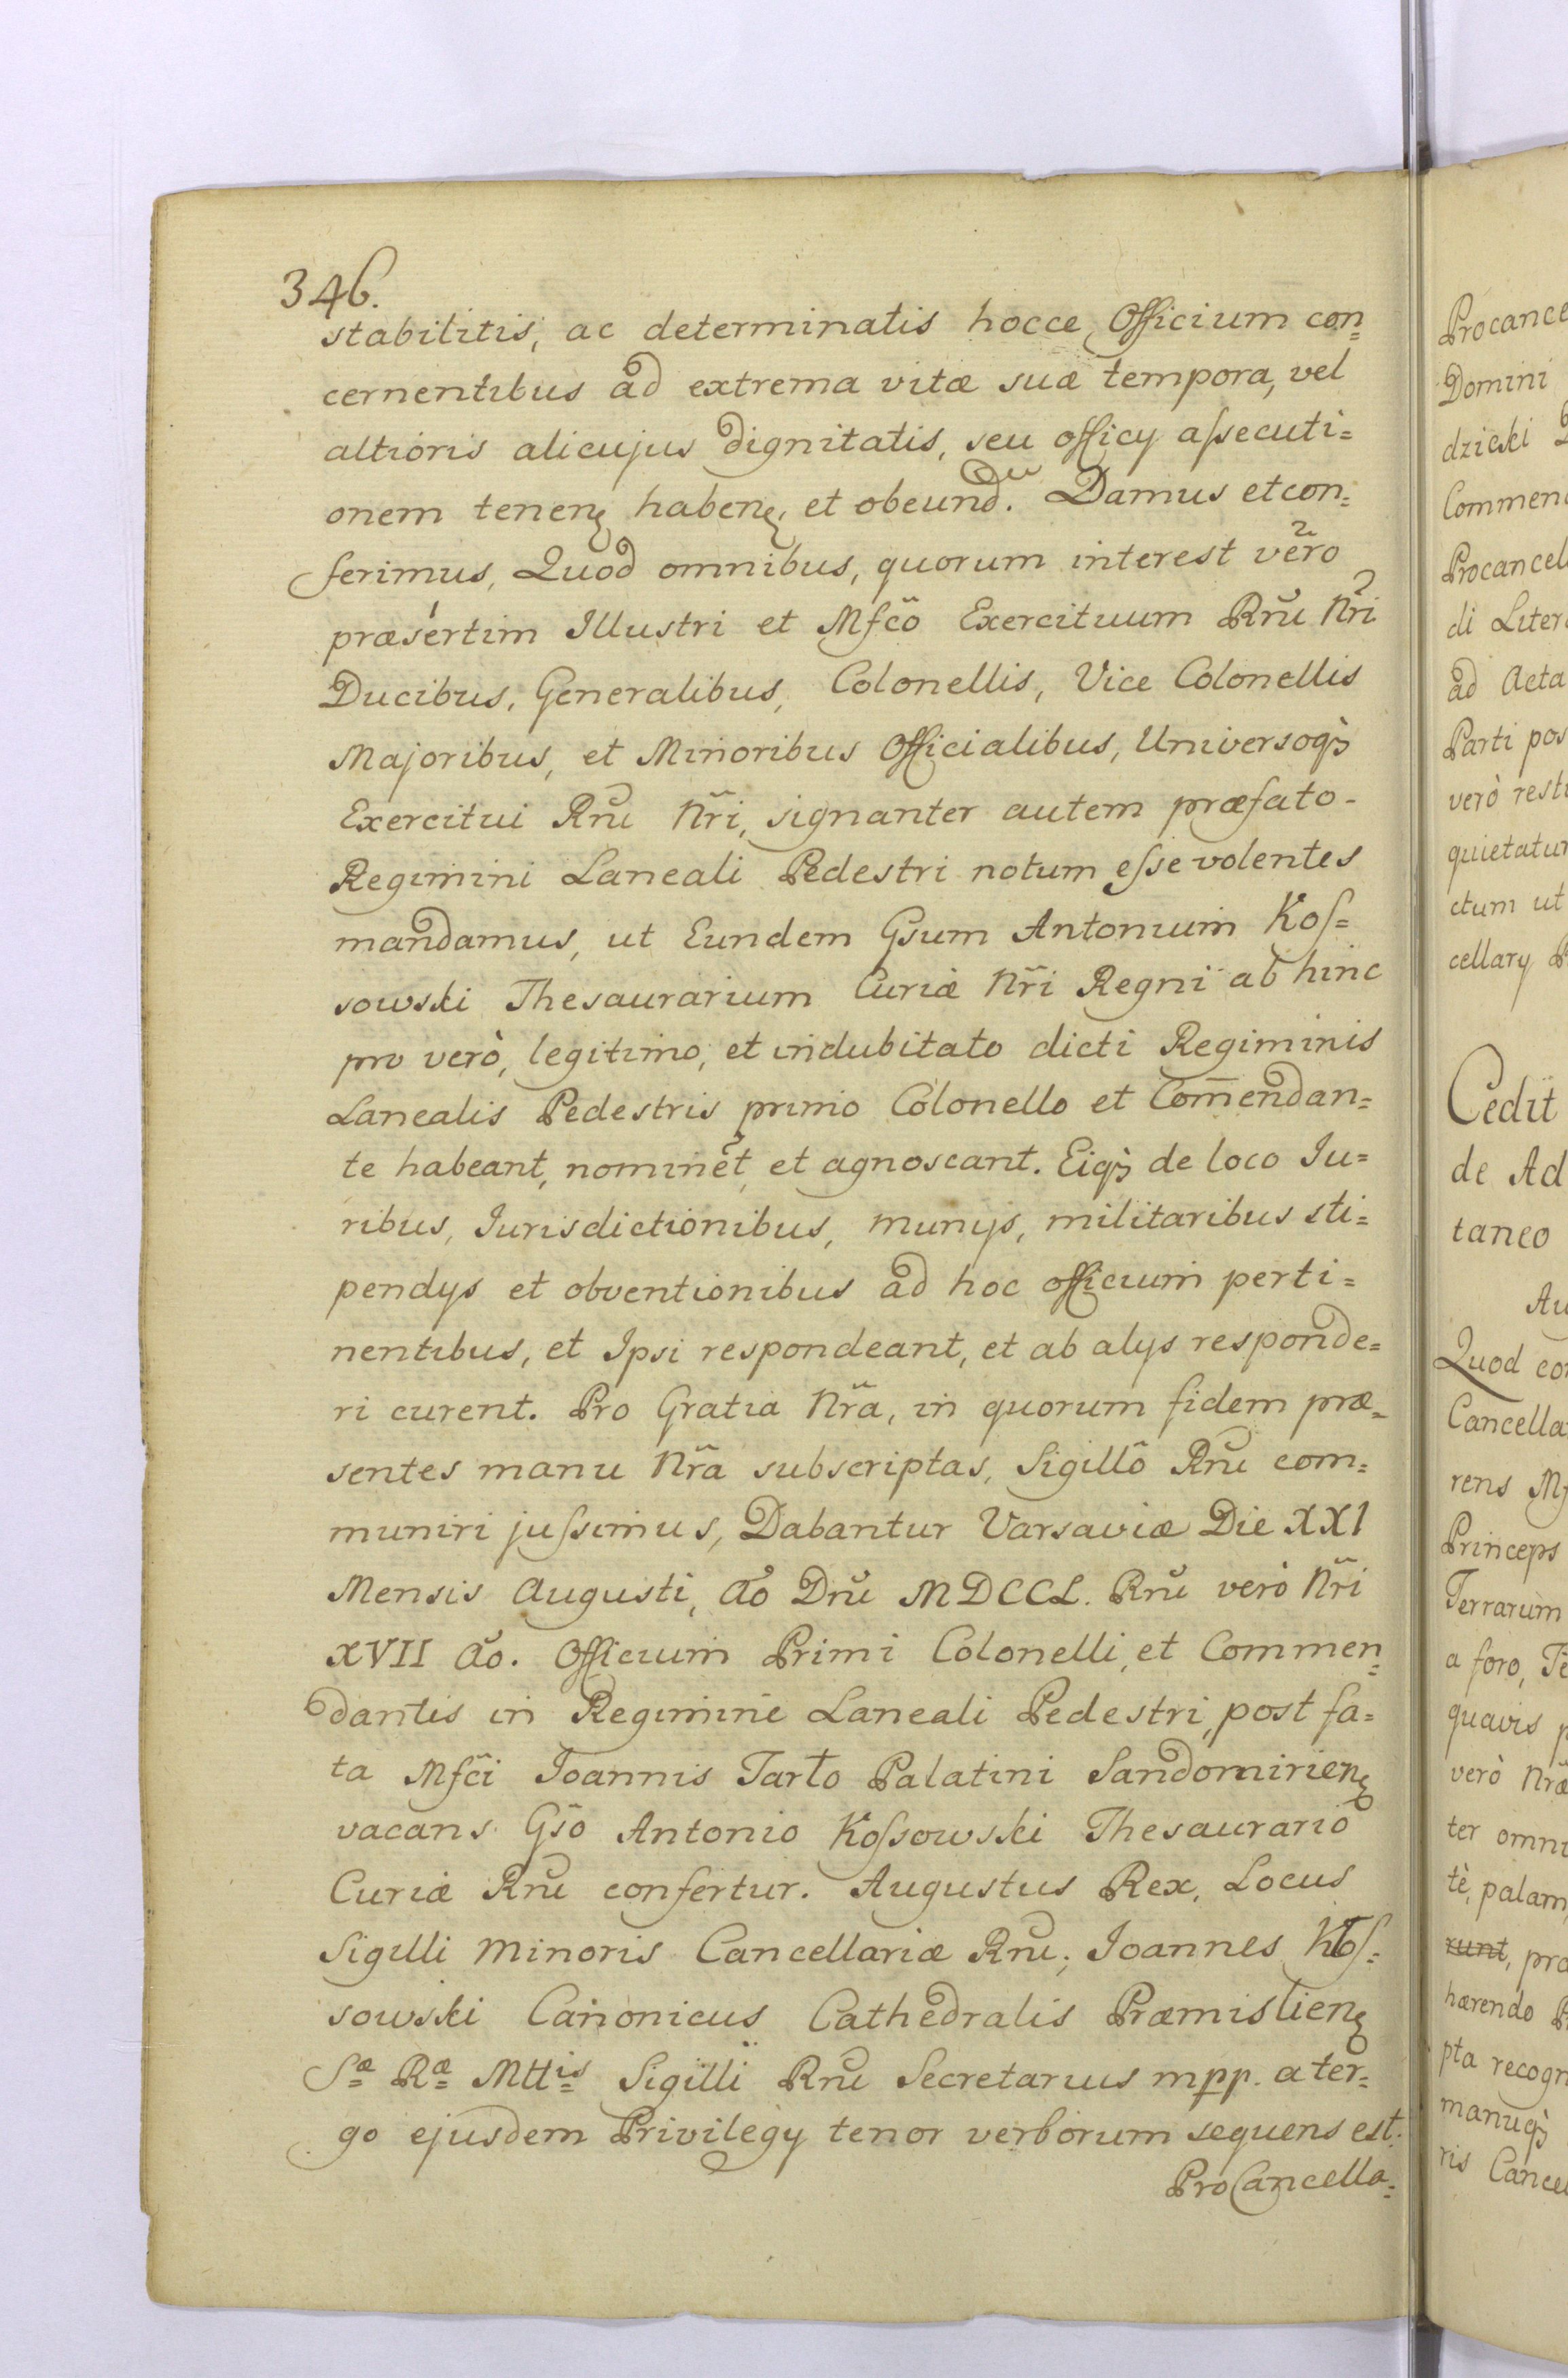 346.
stabilitis, ac determinatis hocce Officium con=
cernentibus ad extrema vitæ suæ tempora, vel
altioris alicujus dignitatis, seu officy aſsecuti=
onem tenenꝫ habenꝫ, et obeund. Damus et con=
ferimus, Quod omnibus, quorum interest vẽro
præsértim Illustri et Mfcõ Exercituum Rñu Ñri
Ducibus, Generalibus, Colonellis, Vice Colonellis
Majoribus, et Minoribus Officialibus, Universoqꝫ
Exercitui Rñu Ñri, signanter autem præfato-
Regimini Laneali Pedestri notum eſse volentes
mandamus, ut Eundem Gsum Antonium Koſ=
sowski Thesaurarium Curiæ Ñri Regni ab hinc
pro verò, legitimo, et indubitato dicti Regiminis
Lanealis Pedestris primo Colonello et Com̃endan=
te habeant, nominẽt, et agnoscant. Eiqꝫ de loco Iu=
ribus, Iurisdictionibus, munijs, militaribus sti=
pendys et obventionibus ad hoc officium perti=
nentibus, et Ipsi respondeant, et ab alys responde=
ri curent. Pro Gratia Ñra, in quorum fidem præ=
sentes manu Ñra subscriptas, Sigillô Rñu com=
muniri juſsimus, Dabantur Varsaviæ Die XXI
Mensis Augusti, Aõ Dñu MDCCL. Rñu verò Ñri
XVII Aõ. Officium Primi Colonelli, et Commen=
dantis in Regimine Laneali Pedestri, post fa=
ta Mfci Joannis Tarło Palatini Sandomirienꝫ
vacans Gsõ Antonio Koſsowski Thesaurariô
Curiæ Rñu confertur. Augustus Rex, Locus
Sigilli Minoris Cancellariæ Rñu; Joannes Kłoſ=
sowski Canonicus Cathedralis Præmislienꝫ
Sæ Ræ Mttis Sigilli Rñu Secretarius mpp. a ter=
go ejusdem Privilegy tenor verborum sequens est.
ProCancella=
Procance
Domini
dzicki
Commen
Procancel
di Liter
ad Acta
Parti pos
verò rest
quietatur
ctum ut
cellary
Cedit
de Ad
taneo
Au
Quod co
Cancella
rens
Princeps
Terrarum
a foro,
quavis
verò Ñræ
ter omni
tè, palam
runt, pro
hærendo
pta recogn
manuqꝫ
ris Cancel